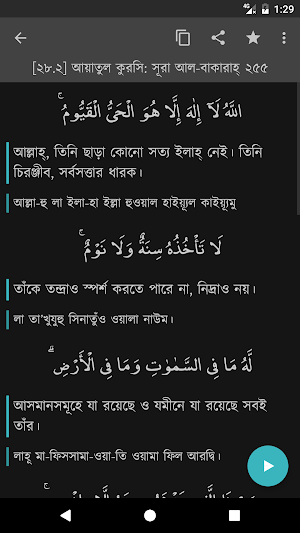 4G 1:29
[২৮.২] আয়াতুল কুরসি: সূরা আল-বাকারাহ্ ২৫৫
اللَّهُ لَآ إِلٰهَ إِلَّا هُوَ الْحَىُّ الْقَيُّومُ ۚ
আল্লাহ্, তিনি ছাড়া কোনো সত্য ইলাহ্ নেই। তিনি
চিরঞ্জীব, সর্বসত্তার ধারক।
আল্লা-হু লা ইলা-হা ইল্লা হুওয়াল হাইয়্যূল কাইয়্যূমু
لَا تَأْخُذُهُۥ سِنَةٌ وَلَا نَوْمٌ ۚ
তাঁকে তন্দ্রাও স্পর্শ করতে পারে না, নিদ্রাও নয়।
লা তা’খুযুহু সিনাতুঁও ওয়ালা নাউম।
لَّهُۥ مَا فِى السَّمٰوٰتِ وَمَا فِى الْأَرْضِ ۗ
আসমানসমূহে যা রয়েছে ও যমীনে যা রয়েছে সবই
তাঁর।
লাহূ মা-ফিসসামা-ওয়া-তি ওয়ামা ফিল আরদ্বি।